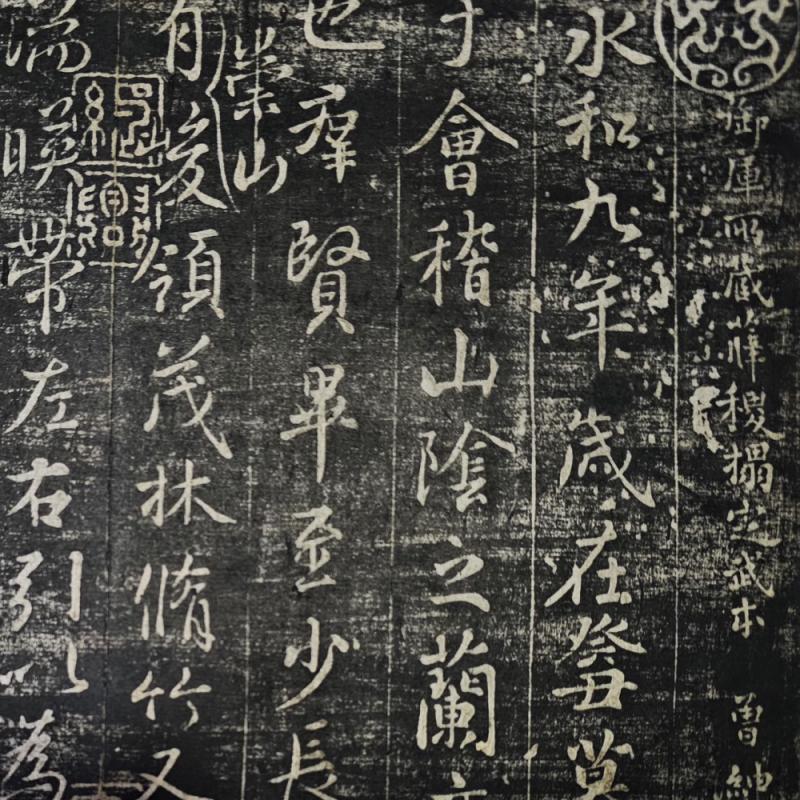 御庫所藏薛稷搨定武本 曾紳
永和九年歲在癸丑暮
于會稽山陰之蘭亭
也羣賢畢至少長
有崇山峻領茂林脩竹又
湍暎帶左右引以為